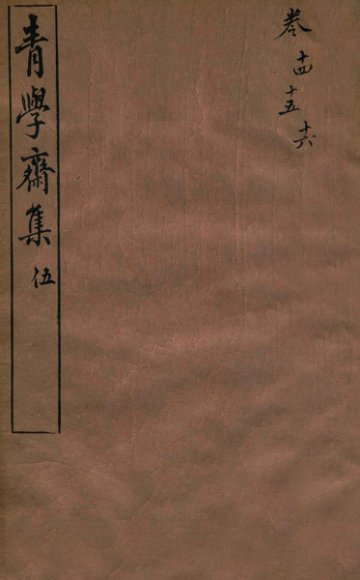 卷十四十五十六
青學齋集 伍